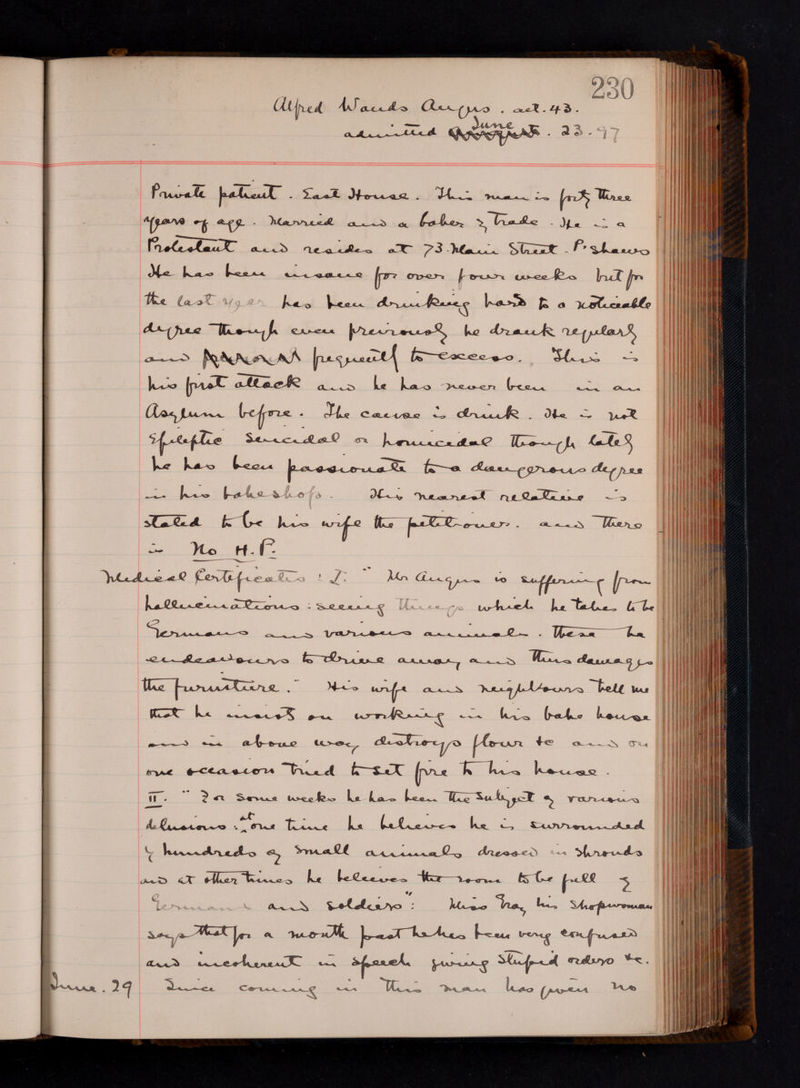 230
Alfred Wands Angus . aet. 43.
admitted June . 23 . 97
Private patient . East House . This man is forty three
years of age . Married and a baker by Trade . He is a
Protestant and resides at 73 Main Street . P'shaws
He has been insane for over four weeks but for
the last year has been drinking hard to a noticeable
degree though even previously he drank regularly
and frequently to excess . This is
his first attack and he has never been in an
Asylum before . The cause is drink . He is not
Epileptic Suicidal or homicidal though lately
he has been passionate to a dangerous degree
in his bakeshop . His nearest relative is
stated to be his wife the petitioner . and there
is No H.P.
Medical Certificates : I. " Mr Angus is suffering from
hallucinations : seeing things which he takes to be
Germans and various animals . These he
endeavours to drive away and thus damages
the furniture . " His wife and neighbours tell me
that he insists on working in his bake house
and in above way destroys flour &c and on
one occasion tried to set fire to his house .
II . " For some weeks he has been the subject of various
delusions : at one time he believes he is surrounded
by hundreds of small animals dressed in shrouds
and at other times he believes the room to be full of
Germans and soldiers " : Miss Hay his shopwoman
says that for a month past he has been very confused
and incoherent in speech giving stupid orders &c .
June . 29 Since coming in this man has given no